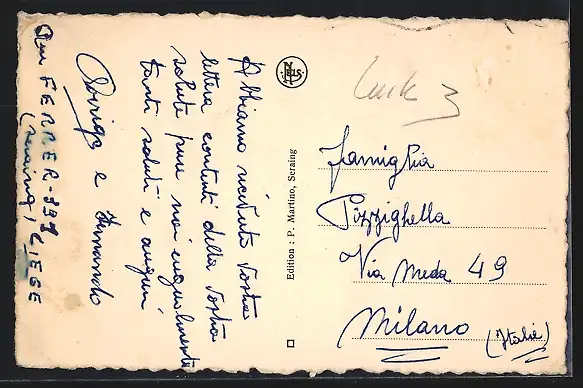 Abbiamo ricevuto Vostra
lettera contenti della Vostra
salute pure noi ugualmente
tanti saluti e auguri
e Fernando
Rue FERRER-197
(seraing) LIEGE
NELS
Edition : P. Martino, Seraing
famiglia
Pizzighella
Via Meda 49
Milano
(Italie)